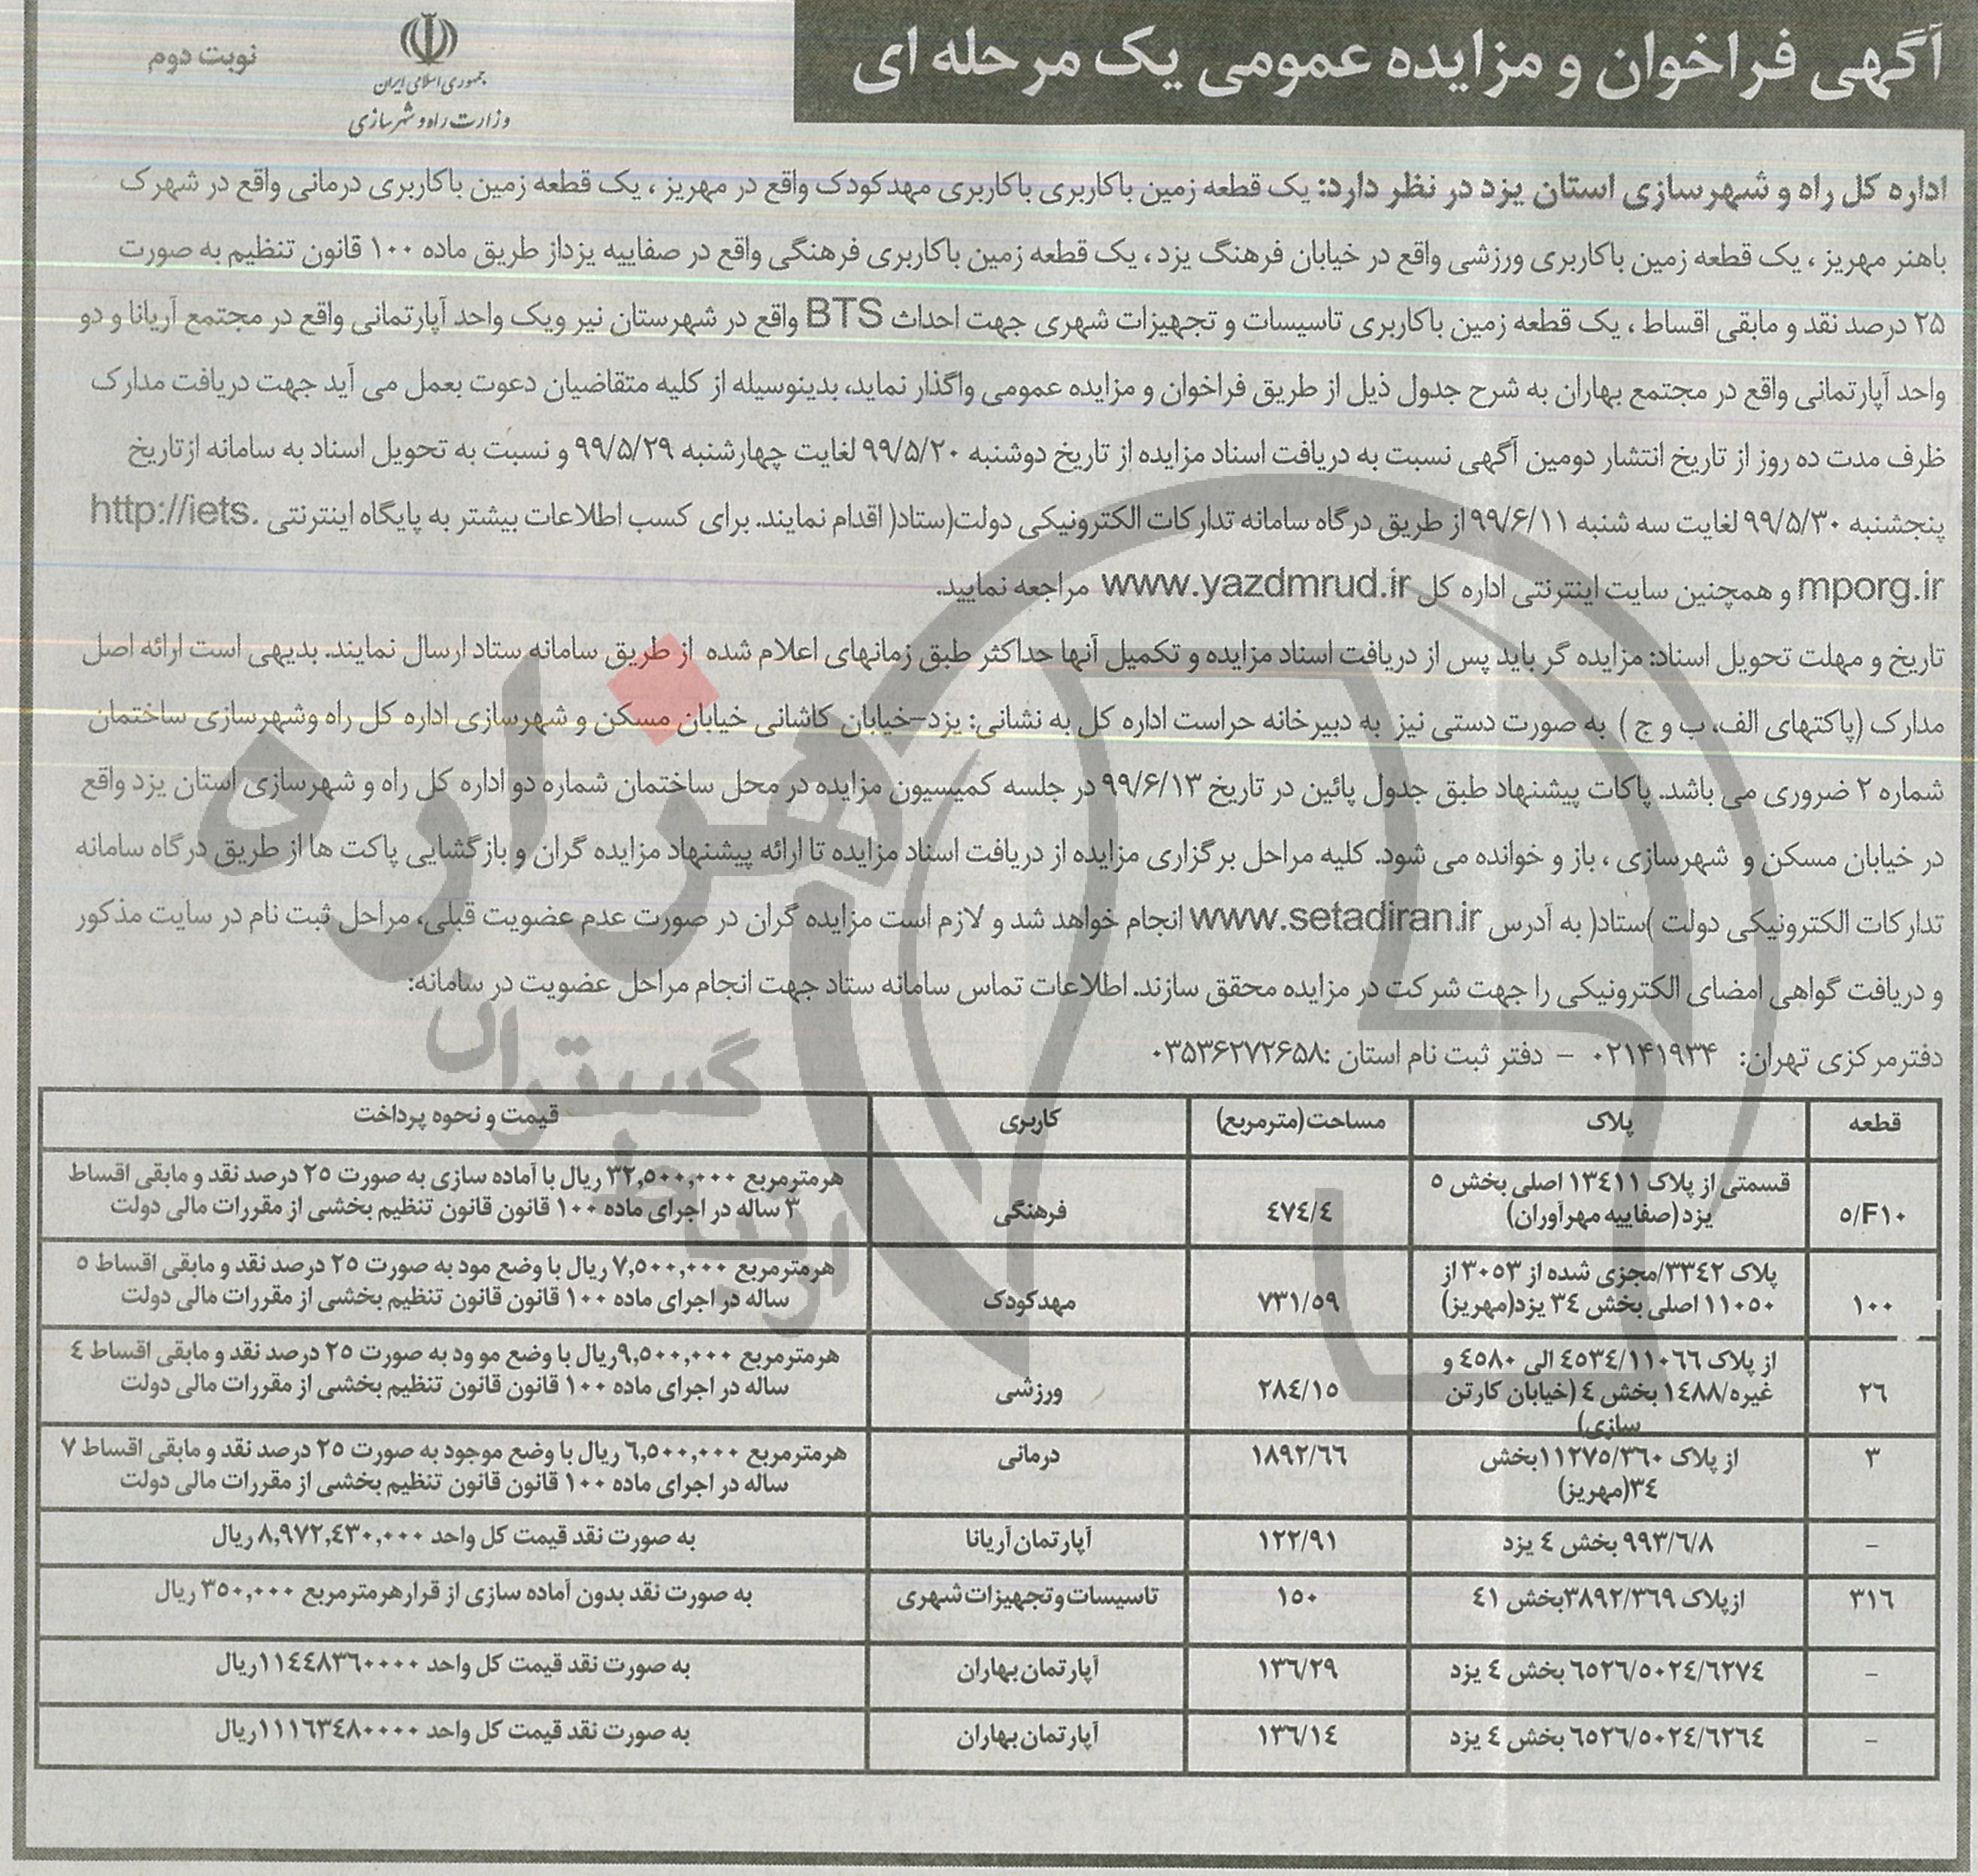 آگهی فراخوان و مزایده عمومی یک مرحله ای
جمهوری اسلامی ایران
وزارت راه و شهرسازی
نوبت دوم
اداره کل راه و شهرسازی استان یزد در نظر دارد: یک قطعه زمین باکاربری باکاربری مهدکودک واقع در مهریز ، یک قطعه زمین باکاربری درمانی واقع در شهرک
باهنر مهریز ، یک قطعه زمین باکاربری ورزشی واقع در خیابان فرهنگ یزد ، یک قطعه زمین باکاربری فرهنگی واقع در صفاییه یزداز طریق ماده ۱۰۰ قانون تنظیم به صورت
۲۵ درصد نقد و مابقی اقساط ، یک قطعه زمین باکاربری تاسیسات و تجهیزات شهری جهت احداث BTS واقع در شهرستان نیر ویک واحد آپارتمانی واقع در مجتمع آریانا و دو
واحد آپارتمانی واقع در مجتمع بهاران به شرح جدول ذیل از طریق فراخوان و مزایده عمومی واگذار نماید، بدینوسیله از کلیه متقاضیان دعوت بعمل می آید جهت دریافت مدارک
ظرف مدت ده روز از تاریخ انتشار دومین آگهی نسبت به دریافت اسناد مزایده از تاریخ دوشنبه ۹۹/۵/۲۰ لغایت چهارشنبه ۹۹/۵/۲۹ و نسبت به تحویل اسناد به سامانه ازتاریخ
پنجشنبه ۹۹/۵/۳۰ لغایت سه شنبه ۹۹/۶/۱۱ از طریق درگاه سامانه تدارکات الکترونیکی دولت(ستاد( اقدام نمایند. برای کسب اطلاعات بیشتر به پایگاه اینترنتی http://iets.
mporg.ir و همچنین سایت اینترنتی اداره کل www.yazdmrud.ir مراجعه نمایید.
تاریخ و مهلت تحویل اسناد: مزایده گر باید پس از دریافت اسناد مزایده و تکمیل آنها حداکثر طبق زمانهای اعلام شده از طریق سامانه ستاد ارسال نمایند. بدیهی است ارائه اصل
مدارک (پاکتهای الف، ب و ج ) به صورت دستی نیز به دبیرخانه حراست اداره کل به نشانی: یزد-خیابان کاشانی خیابان مسکن و شهرسازی اداره کل راه وشهرسازی ساختمان
شماره ۲ ضروری می باشد. پاکات پیشنهاد طبق جدول پائین در تاریخ ۹۹/۶/۱۳ در جلسه کمیسیون مزایده در محل ساختمان شماره دو اداره کل راه و شهرسازی استان یزد واقع
در خیابان مسکن و شهرسازی ، باز و خوانده می شود. کلیه مراحل برگزاری مزایده از دریافت اسناد مزایده تا ارائه پیشنهاد مزایده گران و بازگشایی پاکت ها از طریق درگاه سامانه
تدارکات الکترونیکی دولت )ستاد( به آدرس www.setadiran.ir انجام خواهد شد و لازم است مزایده گران در صورت عدم عضویت قبلی، مراحل ثبت نام در سایت مذکور
و دریافت گواهی امضای الکترونیکی را جهت شرکت در مزایده محقق سازند. اطلاعات تماس سامانه ستاد جهت انجام مراحل عضویت در سامانه:
دفترمرکزی تهران: ۰۲۱۴۱۹۳۴ - دفتر ثبت نام استان :۰۳۵۳۶۲۷۲۶۵۸
قطعه پلاک مساحت(مترمربع) کاربری قیمت و نحوه پرداخت
۵/F۱۰ قسمتی از پلاک ۱۳۴۱۱ اصلی بخش ۵ یزد (صفاییه مهرآوران) ۴۷۴/۴ فرهنگی هرمترمربع ۳۲,۵۰۰,۰۰۰ ریال با آماده سازی به صورت ۲۵ درصد نقد و مابقی اقساط ۳ ساله در اجرای ماده ۱۰۰ قانون قانون تنظیم بخشی از مقررات مالی دولت
۱۰۰ پلاک ۳۳۴۲/مجزی شده از ۳۰۵۳ از ۱۱۰۵۰ اصلی بخش ۳۴ یزد(مهریز) ۷۳۱/۵۹ مهدکودک هرمترمربع ۷,۵۰۰,۰۰۰ ریال با وضع مود به صورت ۲۵ درصد نقد و مابقی اقساط ۵ ساله در اجرای ماده ۱۰۰ قانون قانون تنظیم بخشی از مقررات مالی دولت
۲۶ از پلاک ۴۵۳۴/۱۱۰۶۶ الی ۴۵۸۰ و غیره/۱۴۸۸ بخش ۴ (خیابان کارتن سازی) ۲۸۴/۱۵ ورزشی هرمترمربع ۹,۵۰۰,۰۰۰ریال با وضع مو ود به صورت ۲۵ درصد نقد و مابقی اقساط ۴ ساله در اجرای ماده ۱۰۰ قانون قانون تنظیم بخشی از مقررات مالی دولت
۳ از پلاک ۱۱۲۷۵/۳۶۰بخش ۳۴(مهریز) ۱۸۹۲/۶۶ درمانی هرمترمربع ۶,۵۰۰,۰۰۰ ریال با وضع موجود به صورت ۲۵ درصد نقد و مابقی اقساط ۷ ساله در اجرای ماده ۱۰۰ قانون قانون تنظیم بخشی از مقررات مالی دولت
- ۹۹۳/۶/۸ بخش ۴ یزد ۱۲۲/۹۱ آپارتمان آریانا به صورت نقد قیمت کل واحد ۸,۹۷۲,۴۳۰,۰۰۰ ریال
۳۱۶ ازپلاک ۳۸۹۲/۳۶۹بخش ۴۱ ۱۵۰ تاسیسات و تجهیزات شهری به صورت نقد بدون آماده سازی از قرارهرمترمربع ۳۵۰,۰۰۰ ریال
- ۶۵۲۶/۵۰۲۴/۶۲۷۴ بخش ۴ یزد ۱۳۶/۲۹ آپارتمان بهاران به صورت نقد قیمت کل واحد ۱۱۴۴۸۳۶۰۰۰۰ریال
- ۶۵۲۶/۵۰۲۴/۶۲۶۴ بخش ۴ یزد ۱۳۶/۱۴ آپارتمان بهاران به صورت نقد قیمت کل واحد ۱۱۱۶۳۴۸۰۰۰۰ریال
هزاره
گستران
ارتباط